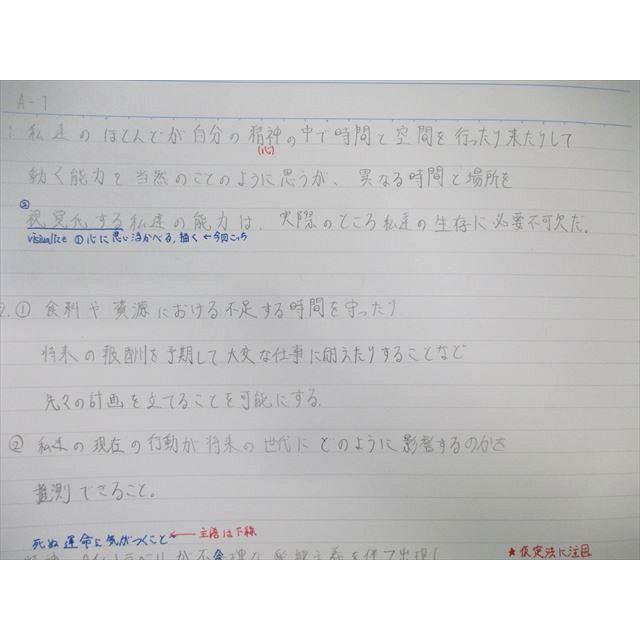 A-1
1. 私達のほとんどが自分の精神の中で時間と空間を行ったり来たりして
(心)
動く能力を当然のことのように思うが、異なる時間と場所を
②
視覚化する私達の能力は、実際のところ私達の生存に必要不可欠だ。
visualize ①心に思い浮かべる,描く ←今回こっち
2. ① 食料や資源における不足する時間を守ったり
将来の報酬を予期して大変な仕事に耐えたりすることなど
先々の計画を立てることを可能にする.
② 私達の現在の行動が将来の世代にどのように影響するのかを
推測できること。
死ぬ運命に気がつくこと ← 主語は下線
★仮定法に注目
が不合理な を